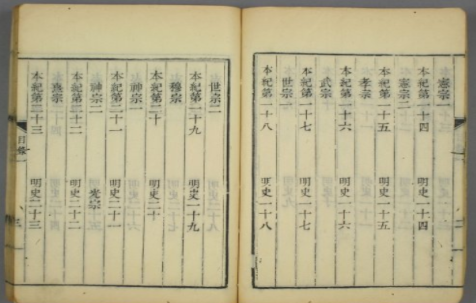 憲宗一
本紀第十四 明史十四
憲宗二
本紀第十五 明史十五
孝宗
本紀第十六 明史十六
武宗
本紀第十七 明史十七
世宗一
本紀第十八 明史十八
世宗二
本紀第十九 明史十九
穆宗
本紀第二十 明史二十
神宗一
本紀第二十一 明史二十一
神宗二 光宗
本紀第二十二 明史二十二
熹宗
本紀第二十三 明史二十三
目錄